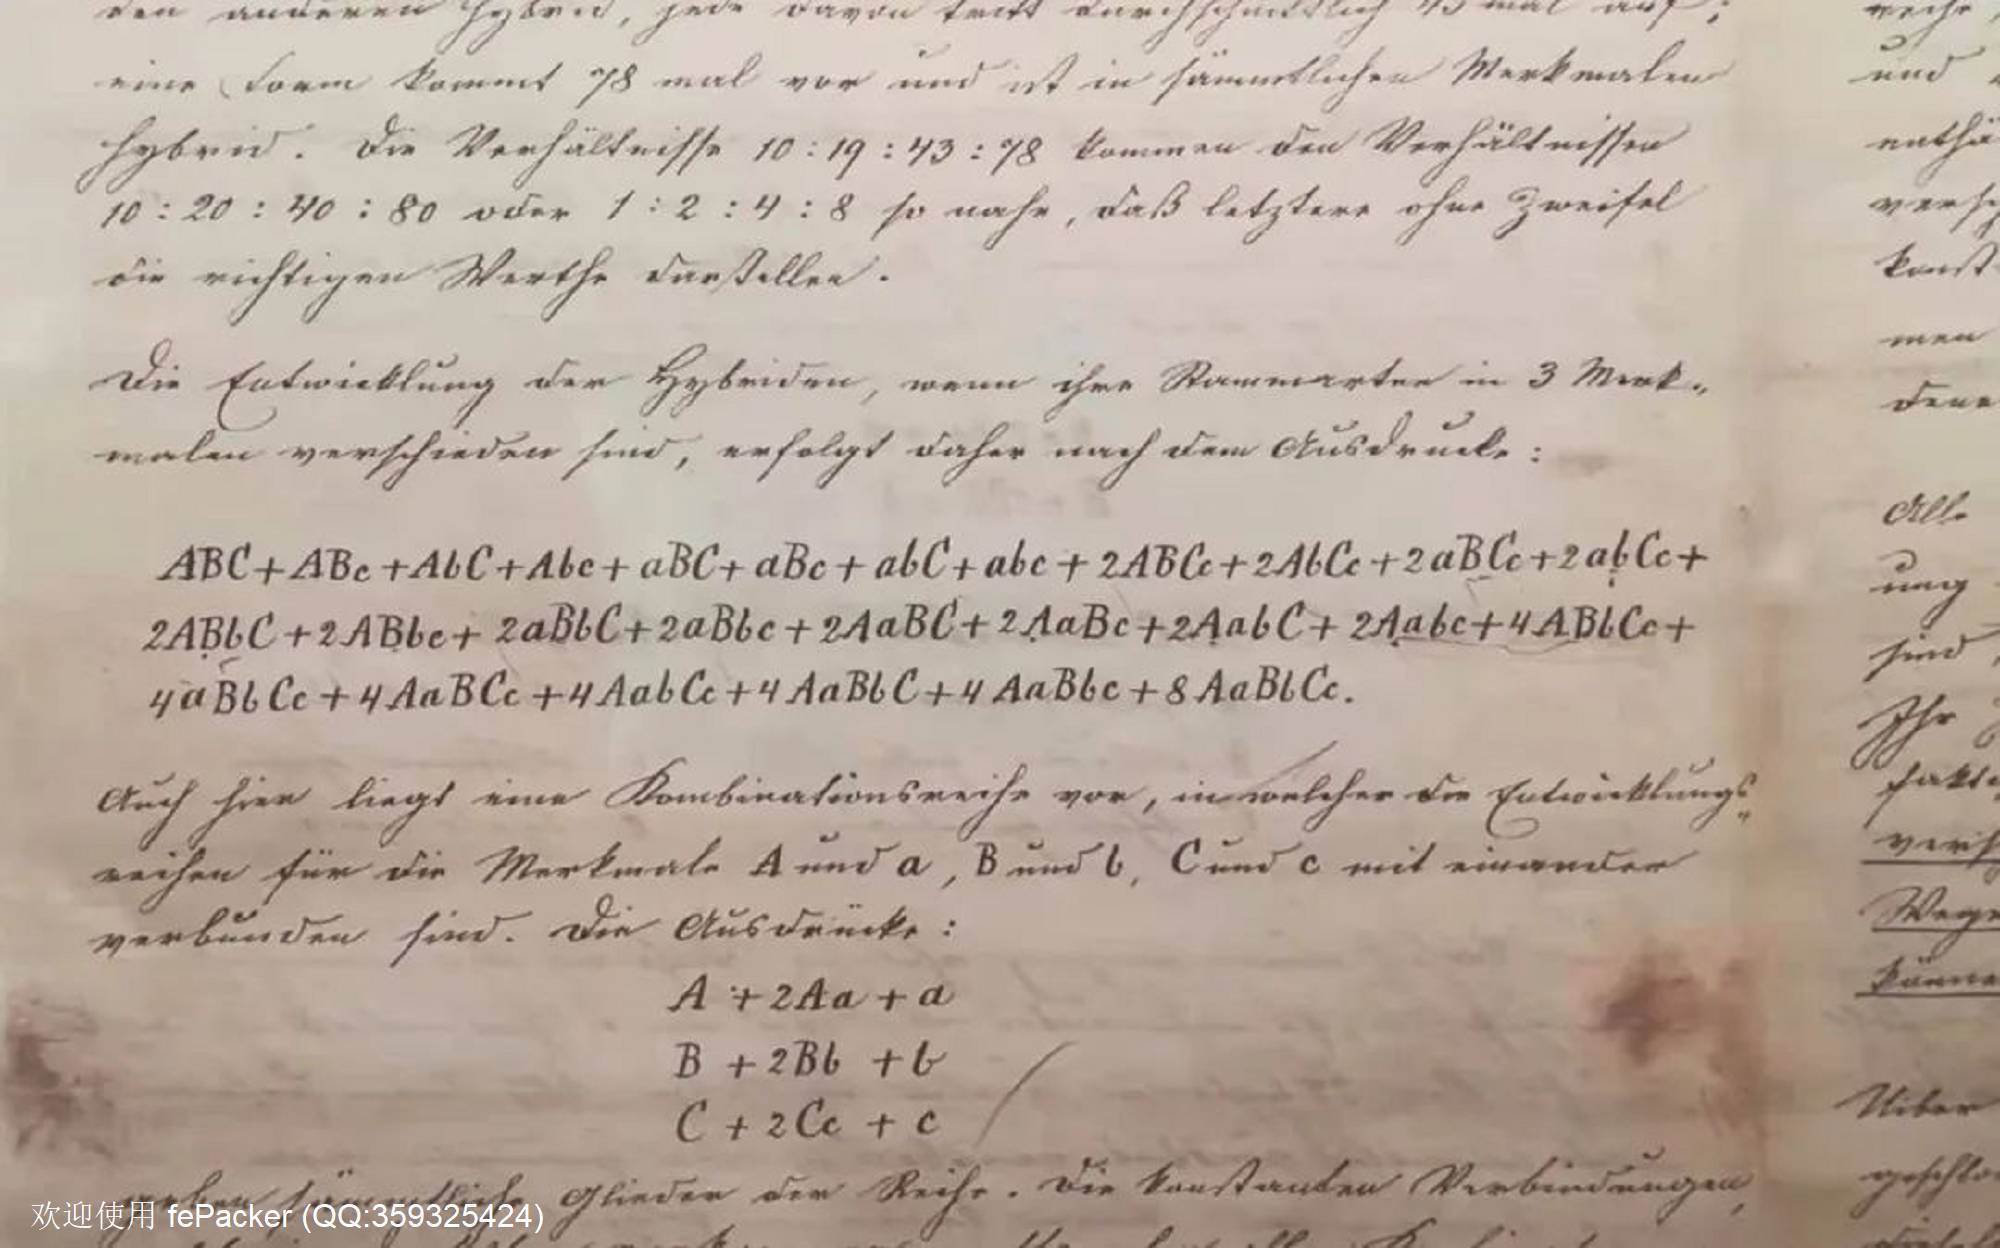 den anderen hybrid, jede davon tritt durchschnittlich 43 mal auf;
eine Form kommt 78 mal vor und ist in sämmtlichen Merkmalen
hybrid. Die Verhältnisse 10 : 19 : 43 : 78 kommen den Verhältnissen
10 : 20 : 40 : 80 oder 1 : 2 : 4 : 8 so nahe, daß letztere ohne Zweifel
die richtigen Werthe darstellen.
Die Entwicklung der Hybriden, wenn ihre Stammarten in 3 Merk-
malen verschieden sind, erfolgt daher nach dem Ausdrucke:
ABC + ABc + AbC + Abc + aBC + aBc + abC + abc + 2ABCc + 2AbCc + 2aBCc + 2abCc +
2ABbC + 2ABbc + 2aBbC + 2aBbc + 2AaBC + 2AaBc + 2AabC + 2Aabc + 4ABbCc +
4aBbCc + 4AaBCc + 4AabCc + 4AaBbC + 4AaBbc + 8AaBbCc.
Auch hier liegt eine Kombinationsreihe vor, in welcher die Entwicklungs-
reihen für die Merkmale A und a, B und b, C und c mit einander
verbunden sind. Die Ausdrücke:
A + 2Aa + a
B + 2Bb + b
C + 2Cc + c
geben sämmtliche Glieder der Reihe. Die konstanten Verbindungen,
und
enthä
versch
konst
men
dene
Alle
ung
sind,
Ihr
fakto
vers
Wege
könne
Uiber
geschlo
欢迎使用 fePacker (QQ:359325424)